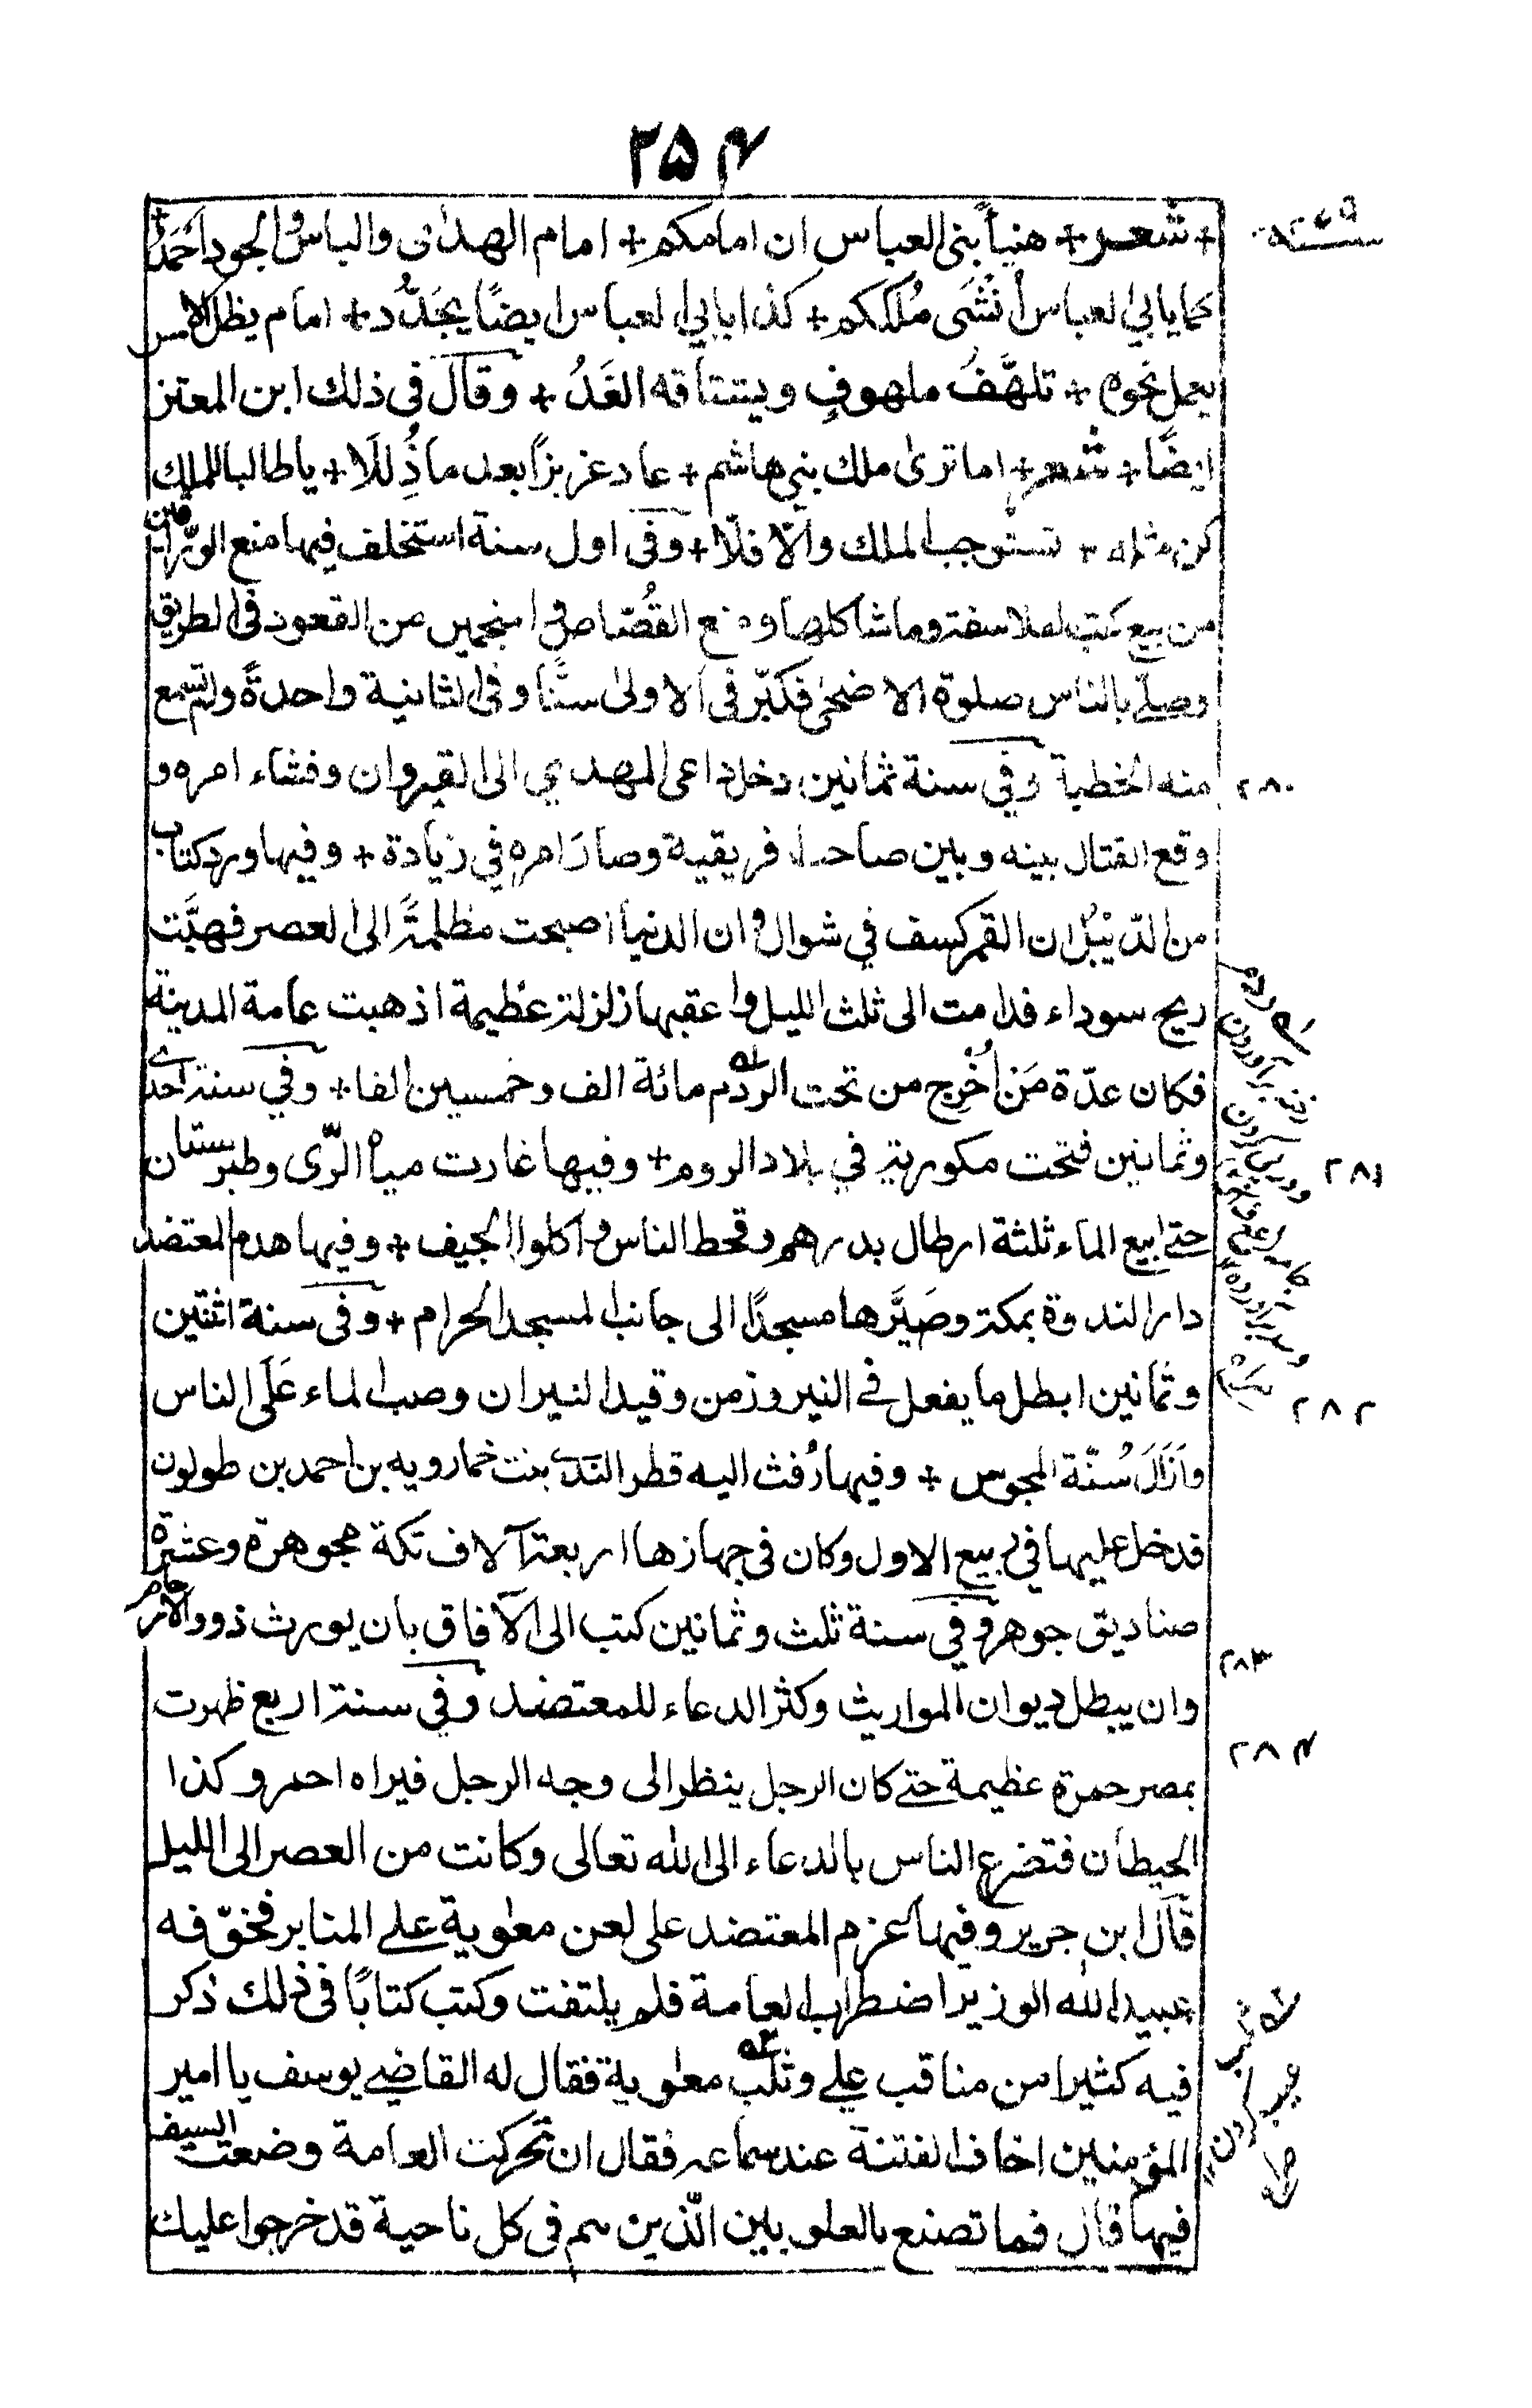 ۲۵۴
+ شعر + هنيأ بنى العباس ان امامكم + امام الهدى والباس والجود احمد +
كما بابى العباس أنشى ملككم + كذا بابى العباس ايضًا يجدّد + امام يظل الامس
يعمل نحوه + تلهّف ملهوفٍ ويشتاقه الغدُ + وقال فى ذلك ابن المعتز
ايضًا + شعر + اما ترى ملك بنى هاشم + عاد عزيزًا بعد ما ذُللا + يا طالبا للملك
كن مثله + تستوجب الملك والّا فلا + وفى اول سنة استخلف فيها منع الورّاقين
من بيع كتب الفلاسفة وما شاكلها ومنع القُصّاص والمنجمين من القعود فى الطريق
وصلّى بالناس صلوة الاضحى فكبّر فى الاولى ستًّا وفى الثانية واحدةً ولم تسمع
منه الخطبة وفي سنة ثمانين دخل داعى المهدي الى القيروان وفشاء امره و
وقع القتال بينه وبين صاحب افريقية وصار امره في زيادة + وفيها ورد كتاب
من الدّيبُل ان القمر كسف في شوال وان الدنيا اصبحت مظلمةً الى العصر فهبَّت
ريح سوداء فدامت الى ثلث الليل واعقبها زلزلة عظيمة اذهبت عامة المدينة
فكان عدّة مَن أُخرِج من تحت الردم مائة الف وخمسين الفا + وفي سنة احدى
وثمانين فتحت مكورية في بلاد الروم + وفيها غارت مياه الرّى وطبرستان
حتى ابيع الماء ثلثة ارطال بدرهم وقحط الناس واكلوا الجيف + وفيها هدم المعتضد
دار الندوة بمكة وصَيَّرها مسجدًا الى جانب المسجد الحرام + وفى سنة اثنتين
وثمانين ابطل ما يفعل فى النيروز من وقيد النيران وصب الماء عَلَى الناس
وأزال سُنّة المجوس + وفيها زُفت اليه قطر الندى بنت خمارويه بن احمد بن طولون
فدخل عليها في ربيع الاول وكان فى جهازها اربعة آلاف تكة مجوهرة وعشرة
صناديق جوهر وفي سنة ثلث وثمانين كتب الى الآفاق بان يورث ذوو الارحام
وان يبطل ديوان المواريث وكثر الدعاء للمعتضد وفي سنة اربع ظهرت
بمصر حمرة عظيمة حتى كان الرجل ينظر الى وجه الرجل فيراه احمر وكذا
الحيطان فتضرع الناس بالدعاء الى الله تعالى وكانت من العصر الى الليل
قال ابن جرير وفيها عزم المعتضد على لعن معٰوية على المنابر فخوّفه
عبيد الله الوزير اضطراب العامة فلم يلتفت وكتب كتابًا فى ذلك ذكر
فيه كثيرا من مناقب علي وثلب معٰوية فقال له القاضى يوسف يا امير
المؤمنين اخاف الفتنة عند سماعه فقال ان تحركت العامة وضعت السيف
فيها قال فما تصنع بالعلويين الّذين هم فى كل ناحية قد خرجوا عليك
۲۷۹
۲۸۰
۲۸۱
۲۸۲
۲۸۳
۲۸۴